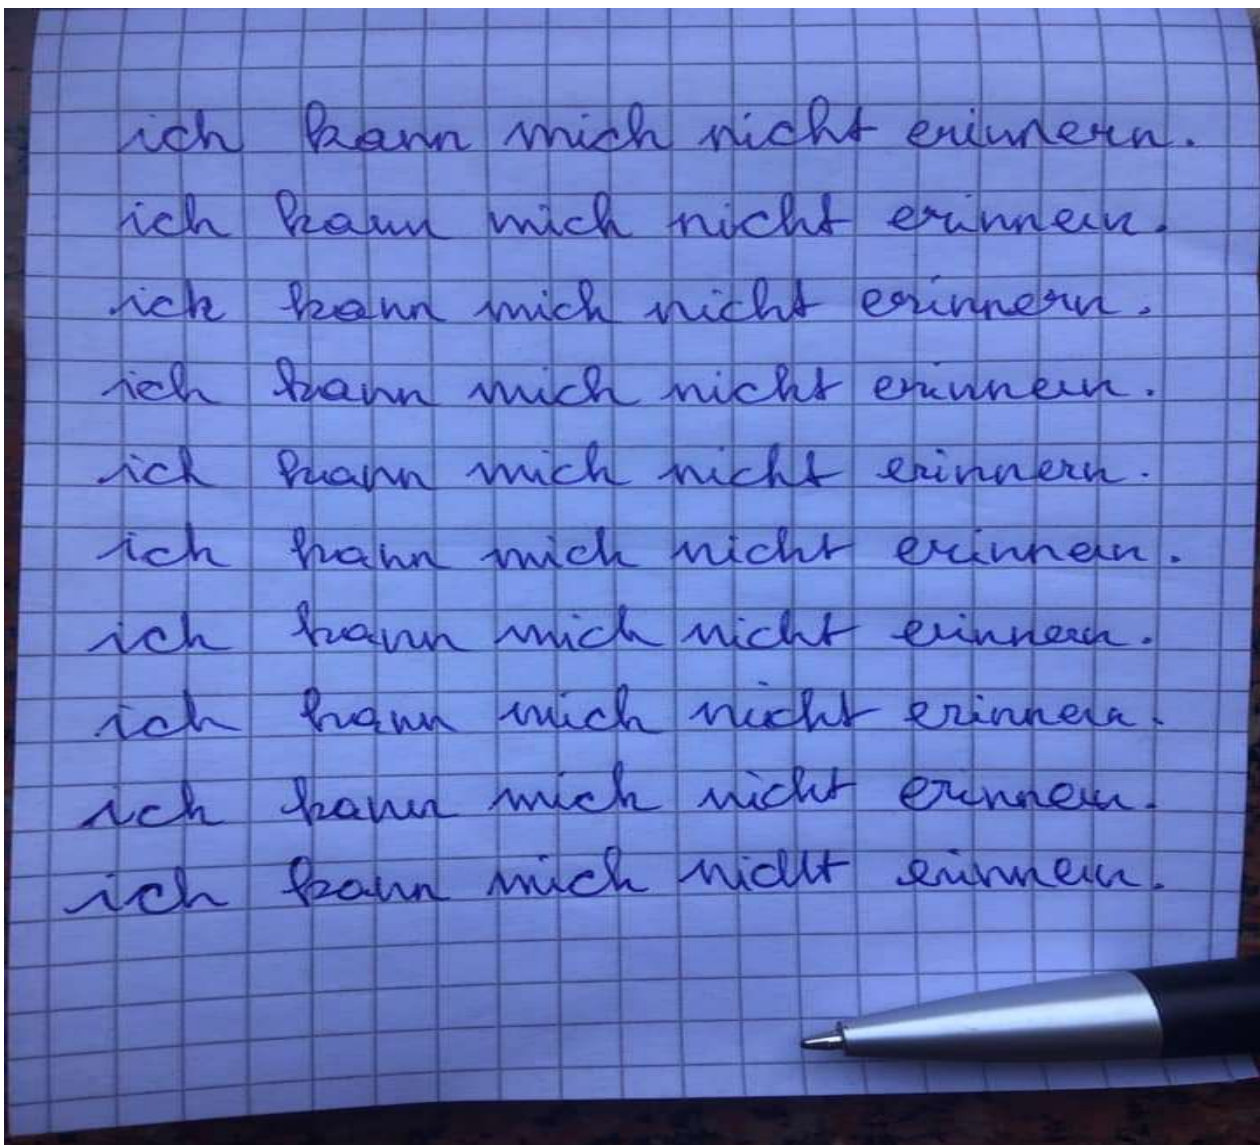 ich kann mich nicht erinnern.
ich kann mich nicht erinnern.
ich kann mich nicht erinnern.
ich kann mich nicht erinnern.
ich kann mich nicht erinnern.
ich kann mich nicht erinnern.
ich kann mich nicht erinnern.
ich kann mich nicht erinnern.
ich kann mich nicht erinnern.
ich kann mich nicht erinnern.